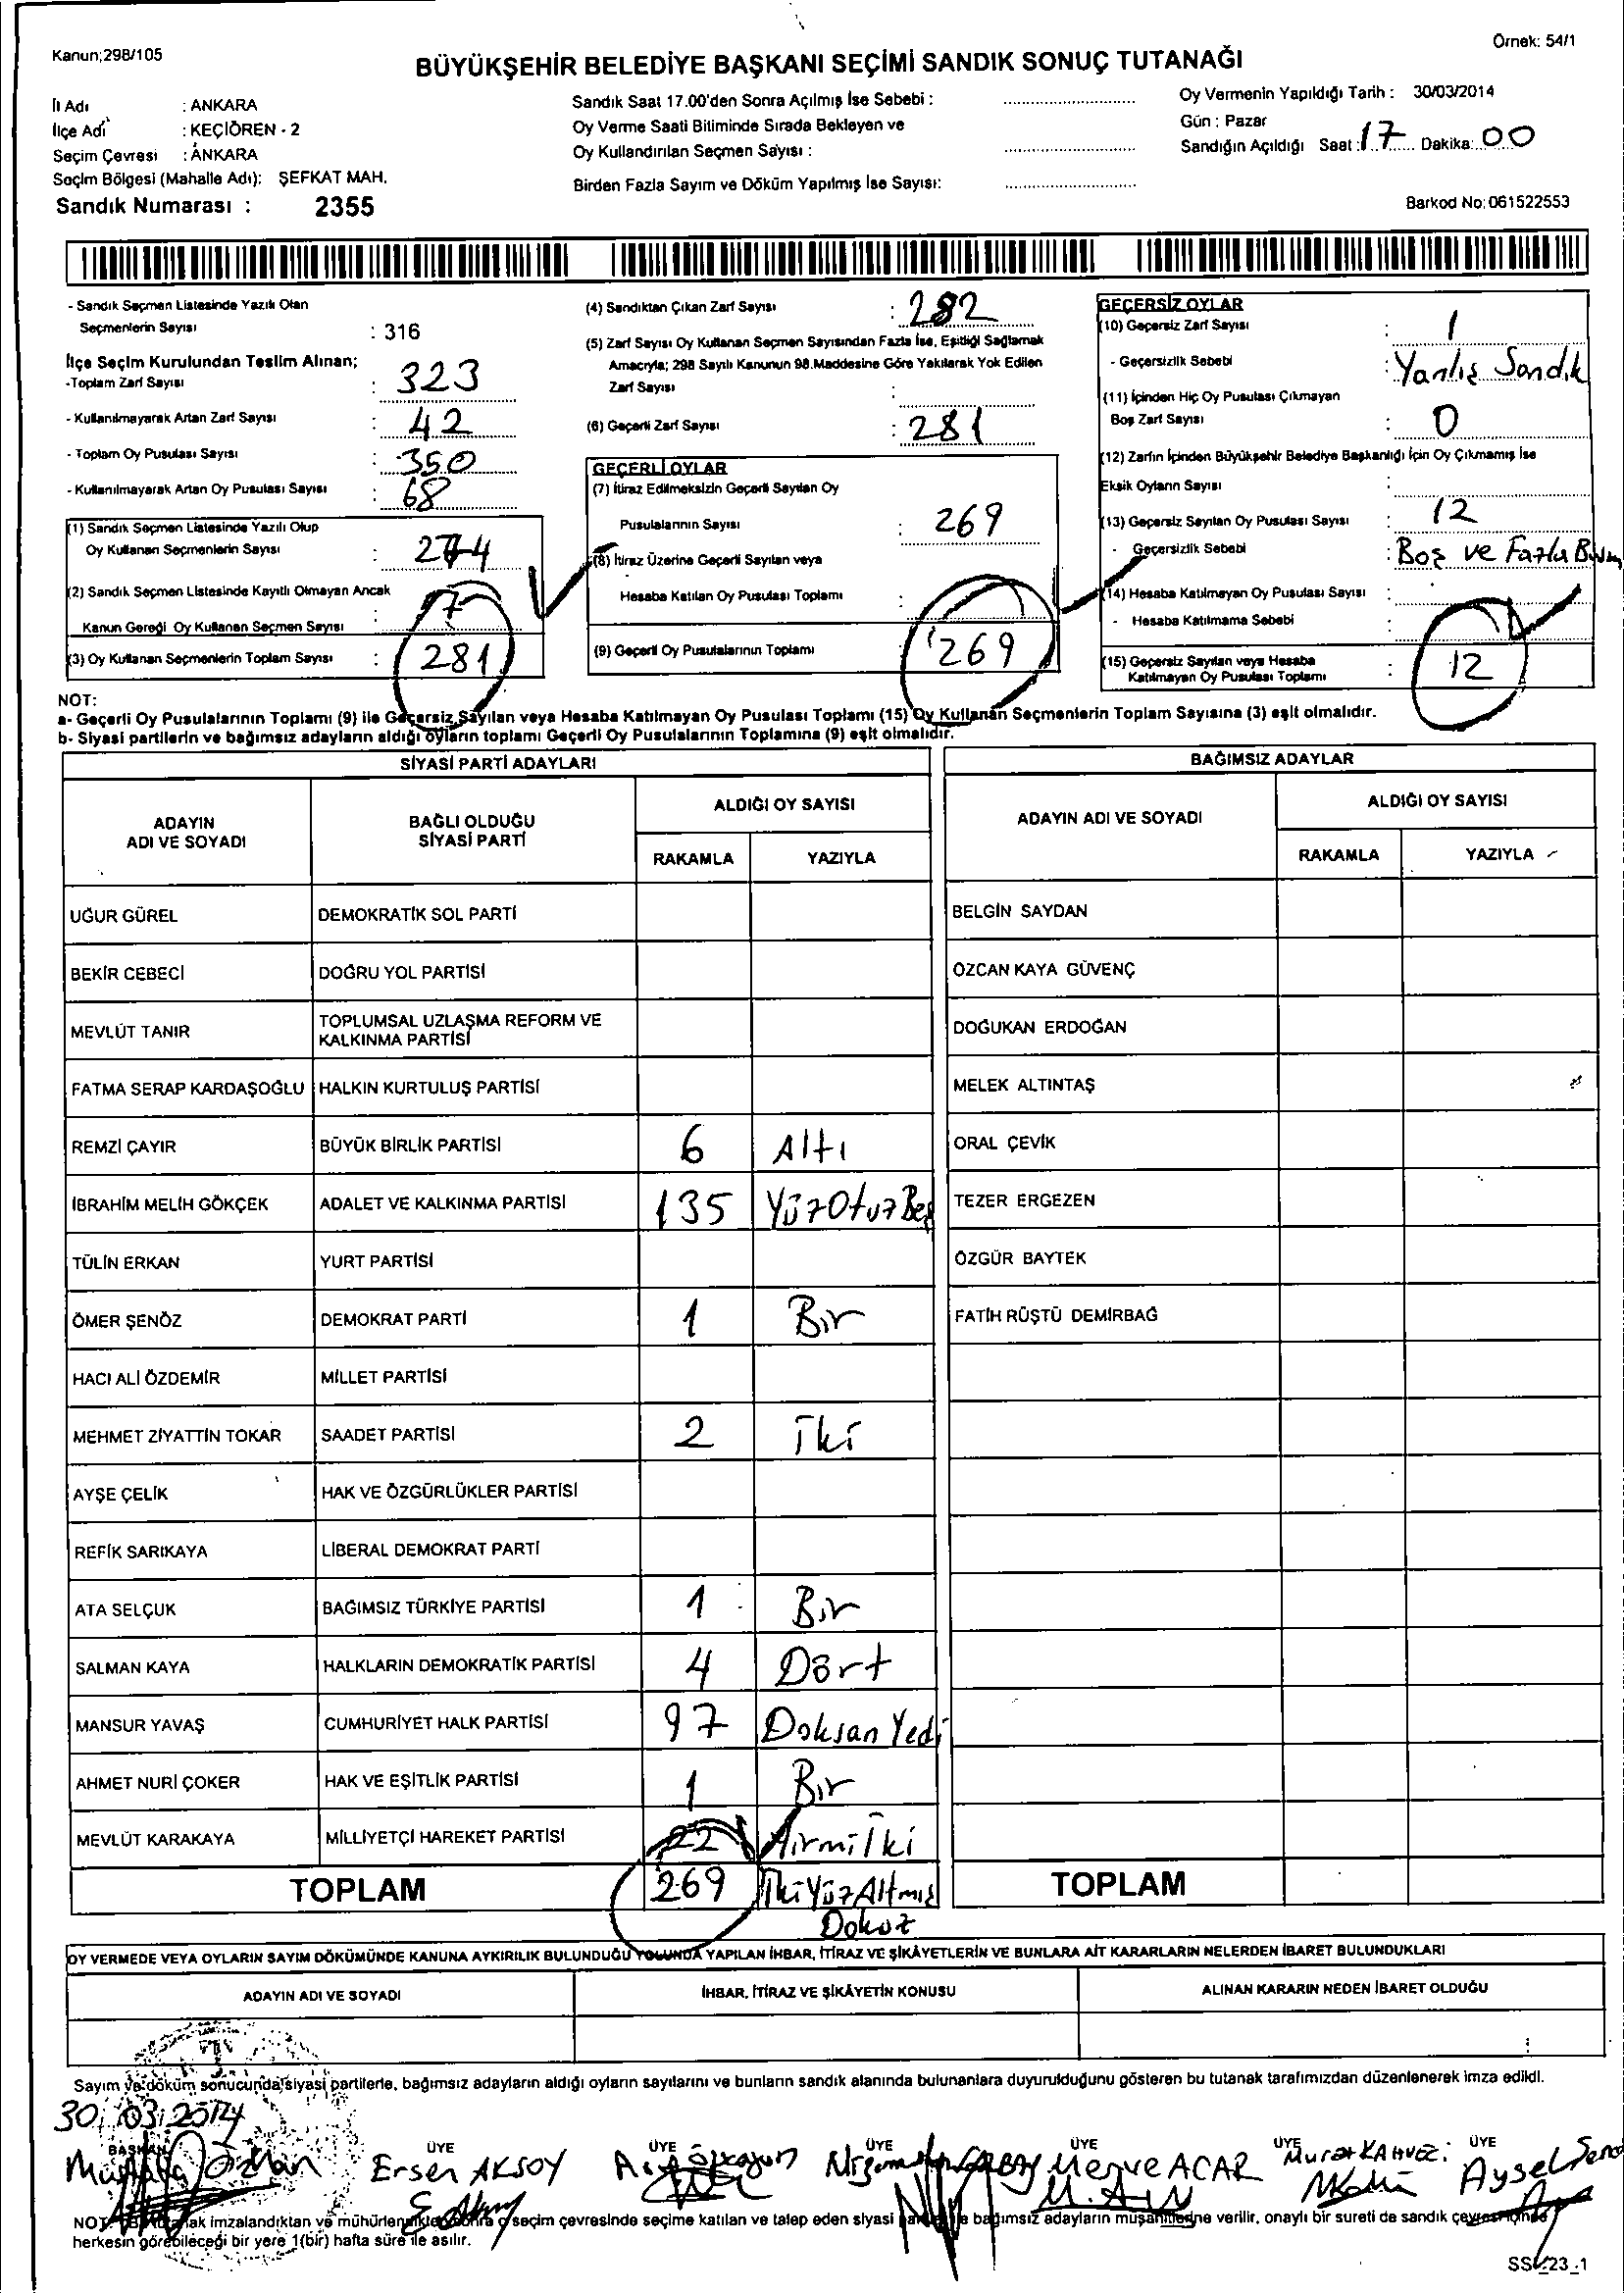 Kanun;298/105
Örnek: 54/1
BÜYÜKŞEHİR BELEDİYE BAŞKANI SEÇİMİ SANDIK SONUÇ TUTANAĞI
İl Adı : ANKARA
İlçe Adı : KEÇİÖREN - 2
Seçim Çevresi : ANKARA
Seçim Bölgesi (Mahalle Adı): ŞEFKAT MAH.
Sandık Numarası : 2355
Sandık Saat 17.00'den Sonra Açılmış İse Sebebi :
Oy Verme Saati Bitiminde Sırada Bekleyen ve
Oy Kullandırılan Seçmen Sayısı :
Birden Fazla Sayım ve Döküm Yapılmış İse Sayısı:
Oy Vermenin Yapıldığı Tarih : 30/03/2014
Gün : Pazar
Sandığın Açıldığı Saat : 17 Dakika: 00
Barkod No: 061522553
- Sandık Seçmen Listesinde Yazılı Olan
Seçmenlerin Sayısı : 316
İlçe Seçim Kurulundan Teslim Alınan;
-Toplam Zarf Sayısı : 323
- Kullanılmayarak Artan Zarf Sayısı : 42
- Toplam Oy Pusulası Sayısı : 350
- Kullanılmayarak Artan Oy Pusulası Sayısı : 68
(1) Sandık Seçmen Listesinde Yazılı Olup
Oy Kullanan Seçmenlerin Sayısı : 274
(2) Sandık Seçmen Listesinde Kayıtlı Olmayan Ancak
Kanun Gereği Oy Kullanan Seçmen Sayısı : 7
(3) Oy Kullanan Seçmenlerin Toplam Sayısı : 281
(4) Sandıktan Çıkan Zarf Sayısı : 282
(5) Zarf Sayısı Oy Kullanan Seçmen Sayısından Fazla İse, Eşitliği Sağlamak
Amacıyla; 298 Sayılı Kanunun 98.Maddesine Göre Yakılarak Yok Edilen
Zarf Sayısı :
(6) Geçerli Zarf Sayısı : 281
GEÇERLİ OYLAR
(7) İtiraz Edilmeksizin Geçerli Sayılan Oy
Pusulalarının Sayısı : 269
(8) İtiraz Üzerine Geçerli Sayılan veya
Hesaba Katılan Oy Pusulası Toplamı :
(9) Geçerli Oy Pusulalarının Toplamı 269
GEÇERSİZ OYLAR
(10) Geçersiz Zarf Sayısı : 1
- Geçersizlik Sebebi : Yanlış Sandık
(11) İçinden Hiç Oy Pusulası Çıkmayan
Boş Zarf Sayısı : 0
(12) Zarfın İçinden Büyükşehir Belediye Başkanlığı İçin Oy Çıkmamış İse
Eksik Oyların Sayısı :
(13) Geçersiz Sayılan Oy Pusulası Sayısı : 12
- Geçersizlik Sebebi : Boş ve Fazla
(14) Hesaba Katılmayan Oy Pusulası Sayısı :
- Hesaba Katılmama Sebebi :
(15) Geçersiz Sayılan veya Hesaba
Katılmayan Oy Pusulası Toplamı : 12
NOT:
a- Geçerli Oy Pusulalarının Toplamı (9) ile Geçersiz Sayılan veya Hesaba Katılmayan Oy Pusulası Toplamı (15) Oy Kullanan Seçmenlerin Toplam Sayısına (3) eşit olmalıdır.
b- Siyasi partilerin ve bağımsız adayların aldığı oyların toplamı Geçerli Oy Pusulalarının Toplamına (9) eşit olmalıdır.
SİYASİ PARTİ ADAYLARI
ADAYIN ADI VE SOYADI
BAĞLI OLDUĞU SİYASİ PARTİ
ALDIĞI OY SAYISI
RAKAMLA YAZIYLA
UĞUR GÜREL DEMOKRATİK SOL PARTİ
BEKİR CEBECİ DOĞRU YOL PARTİSİ
MEVLÜT TANIR TOPLUMSAL UZLAŞMA REFORM VE KALKINMA PARTİSİ
FATMA SERAP KARDAŞOĞLU HALKIN KURTULUŞ PARTİSİ
REMZİ ÇAYIR BÜYÜK BİRLİK PARTİSİ 6 Altı
İBRAHİM MELİH GÖKÇEK ADALET VE KALKINMA PARTİSİ 135 YüzOtuzBeş
TÜLİN ERKAN YURT PARTİSİ
ÖMER ŞENÖZ DEMOKRAT PARTİ 1 Bir
HACI ALİ ÖZDEMİR MİLLET PARTİSİ
MEHMET ZİYATTİN TOKAR SAADET PARTİSİ 2 İki
AYŞE ÇELİK HAK VE ÖZGÜRLÜKLER PARTİSİ
REFİK SARIKAYA LİBERAL DEMOKRAT PARTİ
ATA SELÇUK BAĞIMSIZ TÜRKİYE PARTİSİ 1 Bir
SALMAN KAYA HALKLARIN DEMOKRATİK PARTİSİ 4 Dört
MANSUR YAVAŞ CUMHURİYET HALK PARTİSİ 97 Doksan Yedi
AHMET NURİ ÇOKER HAK VE EŞİTLİK PARTİSİ 1 Bir
MEVLÜT KARAKAYA MİLLİYETÇİ HAREKET PARTİSİ 22 Yirmi İki
TOPLAM 269 İkiYüzAltmış
Dokuz
BAĞIMSIZ ADAYLAR
ADAYIN ADI VE SOYADI
ALDIĞI OY SAYISI
RAKAMLA YAZIYLA
BELGİN SAYDAN
ÖZCAN KAYA GÜVENÇ
DOĞUKAN ERDOĞAN
MELEK ALTINTAŞ
ORAL ÇEVİK
TEZER ERGEZEN
ÖZGÜR BAYTEK
FATİH RÜŞTÜ DEMİRBAĞ
TOPLAM
OY VERMEDE VEYA OYLARIN SAYIM DÖKÜMÜNDE KANUNA AYKIRILIK BULUNDUĞU YOLUNDA YAPILAN İHBAR, İTİRAZ VE ŞİKÂYETLERİN VE BUNLARA AİT KARARLARIN NELERDEN İBARET BULUNDUKLARI
ADAYIN ADI VE SOYADI
İHBAR, İTİRAZ VE ŞİKÂYETİN KONUSU
ALINAN KARARIN NEDEN İBARET OLDUĞU
Sayım ve döküm sonucunda siyasi partilerle, bağımsız adayların aldığı oyların sayılarını ve bunların sandık alanında bulunanlara duyurulduğunu gösteren bu tutanak tarafımızdan düzenlenerek imza edildi.
30/03/2014
BAŞKAN ÜYE ÜYE ÜYE ÜYE ÜYE ÜYE
Mustafa Ersen AKSOY Merve ACAR Murat Aysel
M.
NOT: Bu tutanak imzalandıktan ve mühürlendikten sonra o seçim çevresinde seçime katılan ve talep eden siyasi parti ile bağımsız adayların müşahitlerine verilir, onaylı bir sureti de sandık çevresinde
herkesin görebileceği bir yere 1(bir) hafta süre ile asılır.